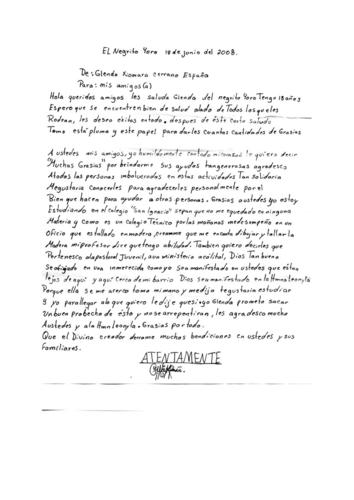 EL Negrito Yoro 18 de junio del 2008.
De: Glenda Xiomara cerrano España
Para: mis amigos(a)
Hola queridos amigos les saluda Glenda del negrito Yoro Tengo 18 años
Espero que se encuentren bien de salud alado de Todos los que les
Rodean, les deseo exitos en todo. despues de éste corto saludo
Tomo esta pluma y este papel para darles Cuantas cantidades de Grasias
A ustedes mis amigos, yo humildemente con todo mi corazon le quiero decir
"Muchas Grasias" por brindarme sus ayudas tan generosas agradesco
A todas las personas inbolucradas en estas actividades Tan Solidaria
Megustaria Conocerles para agradecerles personalmente por el
Bien que hacen para ayudar a otras personas. Grasias a ustedes yo estoy
Estudiando en el colegio "San Ignacio" sepan que no me e quedado en ninguna
Materia y Como es un colegio Técnico por las mañanas me desempeño en un
Oficio que es tallado en madera, creanme que me encanta dibujar y tallar la
Madera mi profesor dice que tengo abilidad. Tambien quiero decirles que
Pertenesco a la pastoral Juvenil, a un ministerio acolital, Dios tan bueno
Se a fijado en una inmerecida como yo se a manifestado en ustedes que éstan
lejos de aqui y aqui cerca de mi barrio Dios se a manifestado en la Hna Leonyla
Porque ella se me aserco tomo mi mano y me dijo te gustaria estudiar
y yo para llegar a lo que quiero le dije que si. yo Glenda prometo sacar
Un buen probecho de ésto y no se arrepentiran, les agradesco mucho
A ustedes y a la Hna Leonyla. Grasias por todo.
Que el Divino creador derrame muchas bendiciones en ustedes y sus
Familiares.
ATENTAMENTE